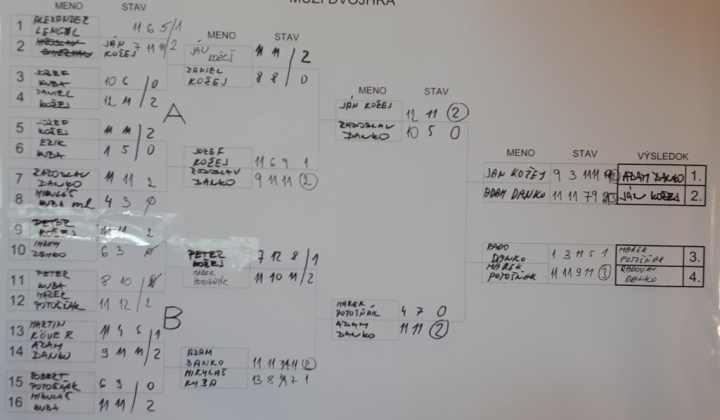 MUŽI DVOJHRA
MENO STAV
1 ALEXANDER LENGYEL 11 6 5 / 1
2 JÁN KOŽEJ 7 11 11 / 2
3 JOZEF KUBA 10 6 / 0
4 DANIEL KOŽEJ 12 11 / 2
A
5 JOZEF KOŽEJ 11 11 / 2
6 ERIK KUBA 1 5 / 0
7 RADOSLAV DANKO 11 11 2
8 MIKULÁŠ KUBA ml 4 3 0
9 PETER KOŽEJ 11 11 2
10 6 3 0
11 PETER KUBA 8 10 / 0
12 MAREK POTOŠŇÁK 11 12 / 2
B
13 MARTIN KÖVER 11 4 6 / 1
14 ADAM DANKO 9 11 11 / 2
15 ROBERT POTOŠŇÁK 6 3 / 0
16 MIKULÁŠ KUBA 11 11 / 2
MENO STAV
JÁN KOŽEJ 11 11 / 2
DANIEL KOŽEJ 8 8 / 0
JOZEF KOŽEJ 11 6 9 1
RADOSLAV DANKO 9 11 11 2
PETER KOŽEJ 7 12 8 / 1
MAREK POTOŠŇÁK 11 10 11 / 2
ADAM DANKO 11 11 2
MIKULÁŠ KUBA 13 8 7 1
MENO STAV
JÁN KOŽEJ 12 11 2
RADOSLAV DANKO 10 5 0
MAREK POTOŠŇÁK 4 7 0
ADAM DANKO 11 11 2
MENO STAV VÝSLEDOK
JÁN KOŽEJ 9 3 11 11 ADAM DANKO 1.
ADAM DANKO 11 11 7 9 JÁN KOŽEJ 2.
RADO DANKO 1 3 11 5 1 MAREK POTOŠŇÁK 3.
MAREK POTOŠŇÁK 11 11 9 11 3 RADOSLAV DANKO 4.